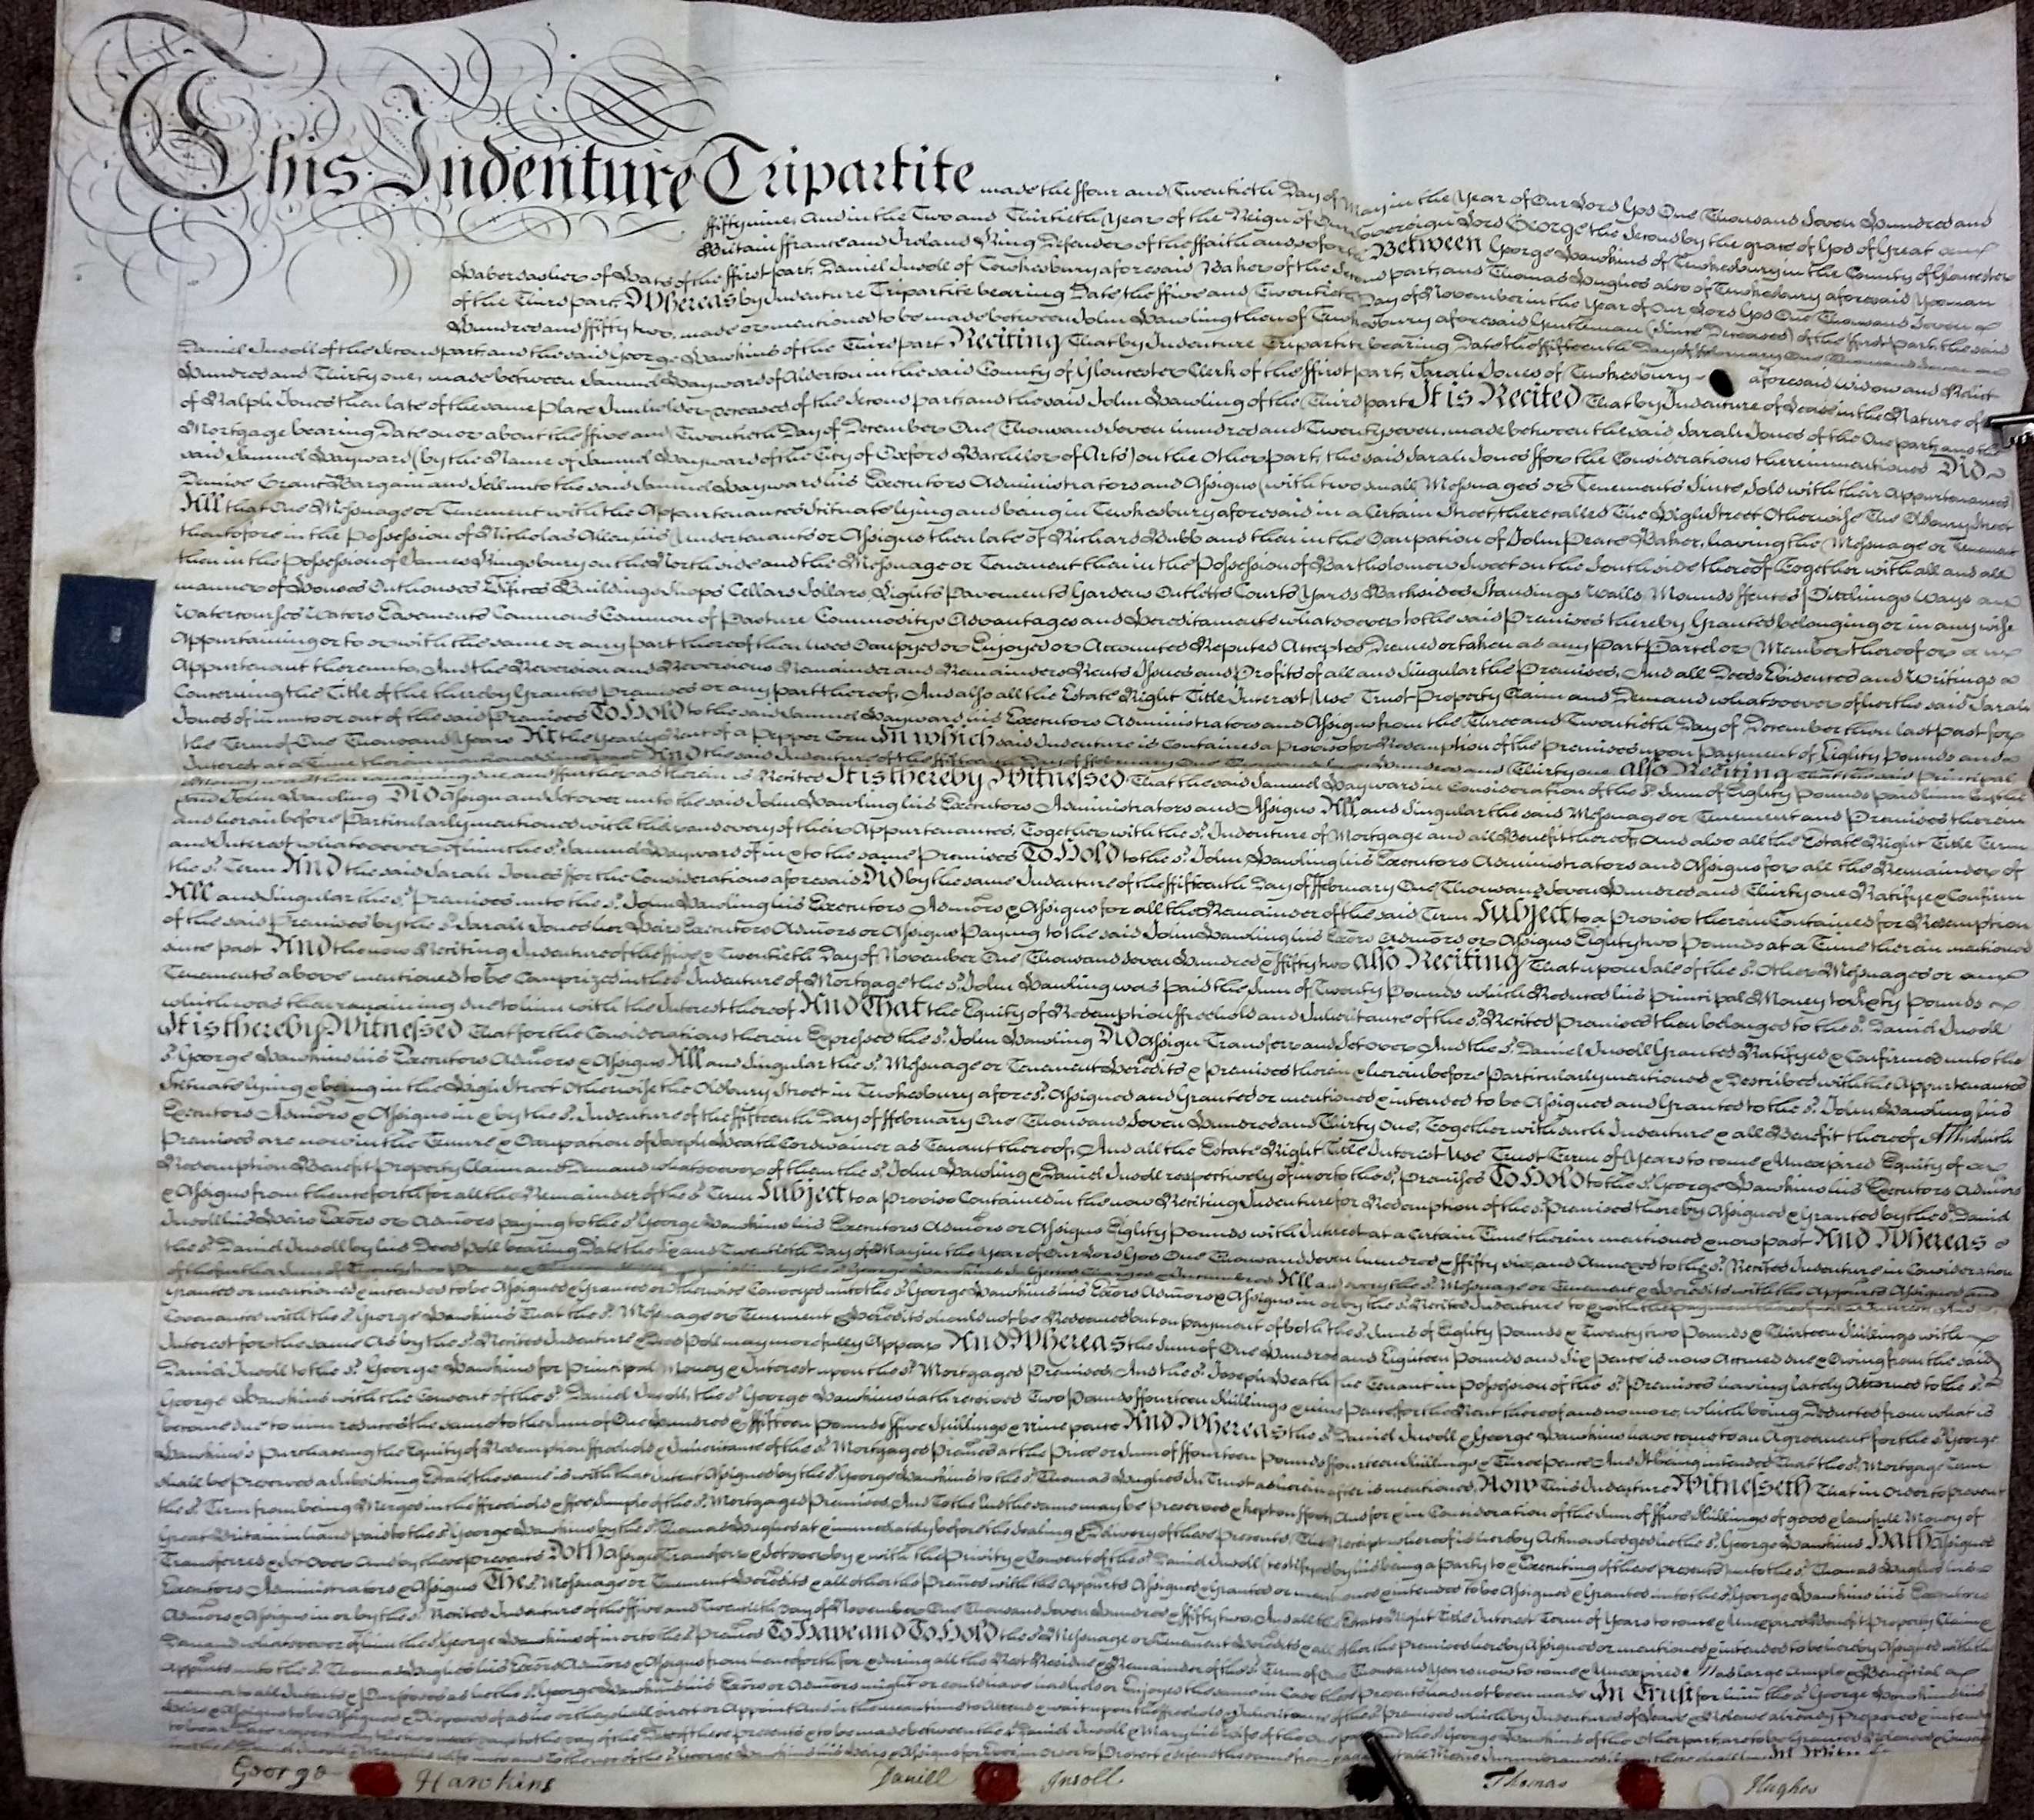 This Indenture Tripartite made the ffour and Twentieth Day of May in the Year of Our Lord God One Thousand Seven Hundred and
ffifty nine, And in the Two and Thirtieth Year of the Reign of Our Sovereign Lord George the Second by the grace of God of Great
Britain ffrance and Ireland King Defender of the ffaith and so forth Between George Hawkins of Tewkesbury in the County of Gloucester
Haberdasher of Hats of the ffirst part, Daniel Insoll of Tewkesbury aforesaid Baker of the Second part, and Thomas Hughes also of Tewkesbury aforesaid Yeoman
of the Third part, Whereas by Indenture Tripartite bearing Date the ffive and Twentieth Day of November in the Year of Our Lord God One Thousand Seven
Hundred and ffifty two, made or mentioned to be made between John Hawling then of Tewkesbury aforesaid Gentleman (Since Deceased) of the ffirst part, the said
Daniel Insoll of the Second part and the said George Hawkins of the Third part Reciting That by Indenture Tripartite bearing Date the ffifteenth Day of ffebruary One Thousand Seven
Hundred and Thirty one, made between Samuel Hayward of Alderton in the said County of Gloucester Clerk of the ffirst part, Sarah Jones of Tewkesbury aforesaid Widow and Relict
of Ralph Jones then late of the same Place Innholder deceased of the Second part and the said John Hawling of the Third part It is Recited That by Indenture of Lease in the Nature of
Mortgage bearing Date on or about the ffive and Twentieth Day of December One Thousand Seven hundred and Twenty seven, made between the said Sarah Jones of the One part, and the
said Samuel Hayward (by the Name of Samuel Hayward of the City of Oxford Bachelor of Arts) on the Other part, the said Sarah Jones ffor the Considerations therein mentioned Did
Demise Grant Bargain and Sell unto the said Samuel Hayward his Executors Administrators and Assigns (with two small Messuages or Tenements Since Sold with their Appurtenances)
All that One Messuage or Tenement with the Appurtenances Situate lying and being in Tewkesbury aforesaid in a Certain Street there called The High Street Otherwise The Oldbury Street
theretofore in the Possession of Nicholas Allen, his Undertenants or Assigns then late of Richard Bubb and then in the Occupation of John Peace Baker, having the Messuage or Tenement
then in the Possession of James Kingsbury on the North side and the Messuage or Tenement then in the Possession of Bartholomew Sweet on the South side thereof Together with all and all
manner of Houses Outhouses Edifices Buildings Shops Cellars Sollars, Lights Pavements Gardens Outletts Courts Yards Backsides Standings Walls Mounds ffences Pitchings Ways
Watercourses Waters Easements Commons Common of Pasture Commoditys Advantages and Hereditaments whatsoever to the said Premises thereby Granted belonging or in any wise
Appurtaining or to or with the same or any part thereof then Used Occupyed or Enjoyed or Accounted Reputed Accepted Deemed or taken as any Part Parcel or Member thereof or
Appurtenant thereunto, And the Reversion and Reversions Remainder and Remainders Rents Issues and Profits of all and Singular the Premises, And all Deeds Evidences and Writings
Concerning the Title of the thereby Granted Premises or any part thereof, And also all the Estate Right Title Interest Use Trust Property Claim and Demand whatsoever of her the said Sarah
Jones of in unto or out of the said Premises To Hold to the said Samuel Hayward his Executors Administrators and Assigns from the Three and Twentieth Day of December then last Past for
the Term of One Thousand Years At the yearly Rent of a Pepper Corn In which said Indenture is Contained a Proviso for Redemption of the Premises upon Payment of Eighty Pounds and
Interest at a Time therein mentioned since past And the said Indenture of the ffifteenth Day of ffebruary One Thousand Seven Hundred and Thirty one Also Reciting that the said Principal
Money was then remaining due, and ffurther as therein is Recited It is thereby Witnessed That the said Samuel Hayward in Consideration of the sd. Sum of Eighty Pounds paid him by the
said John Hawling Did Assign and Set over unto the said John Hawling his Executors Administrators and Assigns All and Singular the said Messuage or Tenement and Premises therein
and herein before Particularly mentioned with their and every of their Appurtenances, Together with the sd. Indenture of Mortgage and all Benefit thereof, And also all the Estate Right Title Term
and Interest whatsoever of him the sd. Samuel Hayward of in & to the same Premises To Hold to the sd. John Hawling his Executors Administrators and Assigns for all the Remainder of
the sd. Term And the said Sarah Jones ffor the Considerations aforesaid Did by the same Indenture of the ffifteenth Day of ffebruary One Thousand Seven Hundred and Thirty one Ratifye & Confirm
All and Singular the sd. Premises unto the sd. John Hawling his Executors Admors & Assigns for all the Remainder of the said Term Subject to a Proviso therein Contained for Redemption
of the said Premises by the sd. Sarah Jones her Heirs Executors Admors or Assigns Paying to the said John Hawling his Exors Admors or Assigns Eighty two Pounds at a Time therein mentioned
since past And the now Reciting Indenture of the ffive & Twentieth Day of November One Thousand Seven Hundred & ffifty two also Reciting That upon Sale of the sd. Other Messuages or
Tenements above mentioned to be Comprized in the sd. Indenture of Mortgage the sd. John Hawling was paid the Sum of Twenty Pounds which Reduced his Principal Money to Sixty Pounds
which was then remaining due to him with the Interest thereof And That the Equity of Redemption ffreehold and Inheritance of the sd. Recited Premises then belonged to the sd. Daniel Insoll
It is thereby Witnessed That for the Considerations therein Expressed the sd. John Hawling Did Assign Transfer and Set over And the sd. Daniel Insoll Granted Ratifyed & Confirmed unto the
sd. George Hawkins his Executors Admors & Assigns All and Singular the sd. Messuage or Tenement Heredits & Premises therein & herein before Particularly mentioned & Described with the Appurtenances
Situate lying & being in the High Street Otherwise the Oldbury Street in Tewkesbury aforesd. Assigned and Granted or mentioned & intended to be Assigned and Granted to the sd. John Hawling his
Executors Admors & Assigns in & by the sd. Indenture of the ffifteenth Day of ffebruary One Thousand Seven Hundred and Thirty One, Together with such Indenture & all Benefit thereof All which
Premises are now in the Tenure & Occupation of Joseph Heath Cordwainer as Tenant thereof, And all the Estate Right Title Interest Use Trust Term of Years to come & Unexpired Equity of
Redemption Benefit Property Claim and Demand whatsoever of them the sd. John Hawling & Daniel Insoll respectively of in or to the sd. Premises To Hold to the sd. George Hawkins his Executors Admors
& Assigns from thenceforth for all the Remainder of the sd. Term Subject to a Proviso Contained in the now Reciting Indenture for Redemption of the sd. Premises thereby Assigned & Granted by the sd. Daniel
Insoll his Heirs Exors or Admors paying to the sd. George Hawkins his Executors Admors or Assigns Eighty Pounds with Interest at a Certain Time therein mentioned & now past And Whereas
the sd. Daniel Insoll by his Deed Poll bearing Date the Six and Twentieth Day of May in the Year of Our Lord God One Thousand Seven hundred & ffifty six, and Annexed to the sd. Recited Indenture in Consideration
of the further Sum of Twenty two Pounds & Thirteen Shillings by the sd. George Hawkins All and every the sd. Messuage or Tenement & Heredits with the Appurts Assigned and
Granted or mentioned & intended to be Assigned & Granted or Otherwise Conveyed unto the sd. George Hawkins his Exors Admors & Assigns in or by the sd. Recited Indenture to & with the payment thereof
Covenanted with the sd. George Hawkins That the sd. Messuage or Tenement & Heredits should not be Redeemed but on payment of both the sd. Sums of Eighty Pounds & Twenty two Pounds & Thirteen Shillings with
Interest for the same As by the sd. Recited Indenture & Deed Poll may more fully Appear And Whereas the Sum of One Hundred and Eighteen Pounds and Six pence is now Accrued due & Owing from the said
Daniel Insoll to the sd. George Hawkins for Principal Money & Interest upon the sd. Mortgaged Premises, And the sd. Joseph Heath the Tenant in Possession of the sd. Premises having lately Attorned to the sd.
George Hawkins with the Consent of the sd. Daniel Insoll, the sd. George Hawkins hath received Two Pounds ffourteen Shillings & nine Pence for the Rent thereof and no more, which being Deducted from what is
become due to him reduces the same to the Sum of One Hundred & ffifteen Pounds ffive Shillings & Nine pence And Whereas the sd. Daniel Insoll & George Hawkins have come to an Agreement for the sd. George
Hawkins's Purchasing the Equity of Redemption ffreehold & Inheritance of the sd. Mortgaged Premes at the Price or Sum of ffourteen Pounds ffourteen Shillings & Three Pence And it being intended That the sd. Mortgage Term
shall be Preserved a Subsisting Estate, the same is with that intent Assigned by the sd. George Hawkins to the sd. Thomas Hughes In Trust as hereinafter is mentioned, Now This Indenture Witnesseth That in Order to prevent
the sd. Term from being Merged in the ffreehold & ffee Simple of the sd. Mortgaged Premises, And To the End the same may be preserved & kept on ffoot, And for & in Consideration of the Sum of ffive Shillings of good & lawfull Money of
Great Britain in hand paid to the sd. George Hawkins by the sd. Thomas Hughes at & immediately before the Sealing & Delivery of these Presents, The Receipt whereof is hereby Acknowledged he the sd. George Hawkins Hath Assigned
Transferred & Set Over And by these presents Doth Assign Transfer & Set over by & with the Privity & Consent of the sd. Daniel Insoll (testifyed by his being a Party to & Executing of these presents) unto the sd. Thomas Hughes his
Executors Administrators & Assigns The sd. Messuage or Tenement Heredits & all other the Premes with the Appurts Assigned & Granted or mentioned & intended to be Assigned & Granted unto the sd. George Hawkins his Executors
Admors & Assigns in or by the sd. Recited Indenture of the ffive and Twentieth Day of November One Thousand Seven Hundred & ffifty two, And all the Estate Right Title Interest Term of Years to come & Unexpired Benefit Property Claim &
Demand whatsoever of him the sd. George Hawkins of in or to the sd. Premes To Have and To Hold the sd. Messuage or Tenement Heredits & all other the Premises hereby Assigned or mentioned & intended to be hereby Assigned with the
Appurts unto the sd. Thomas Hughes his Exors Admors & Assigns from henceforth for & during all the Rest Residue & Remainder of the sd. Term of One Thousand Years now to come & Unexpired In as large Ample & Beneficial
manner to all Intents & Purposes as he the sd. George Hawkins his Exors or Admors might or could have had held or Enjoyed the same in Case these Presents had not been made In Trust for him the sd. George Hawkins his
Heirs & Assigns to be Assigned & Disposed of as he or they shall direct or Appoint And in the meantime to Attend & wait upon the ffreehold & Inheritance of the sd. Premises which by Indentures of Lease & Release already Prepared & intended
to bear Date respectively the two next days to the day of the Date of these presents & to be made between the sd. Daniel Insoll & Mary his Wife of the One part and the sd. George Hawkins of the Other part, are to be Granted Released &
the sd. Daniel Insoll & Mary his Wife unto and To the use of the sd. George Hawkins his Heirs & Assigns for Ever in order to Protect & Defend the same from
George Hawkins
Daniell Insoll
Thomas Hughes